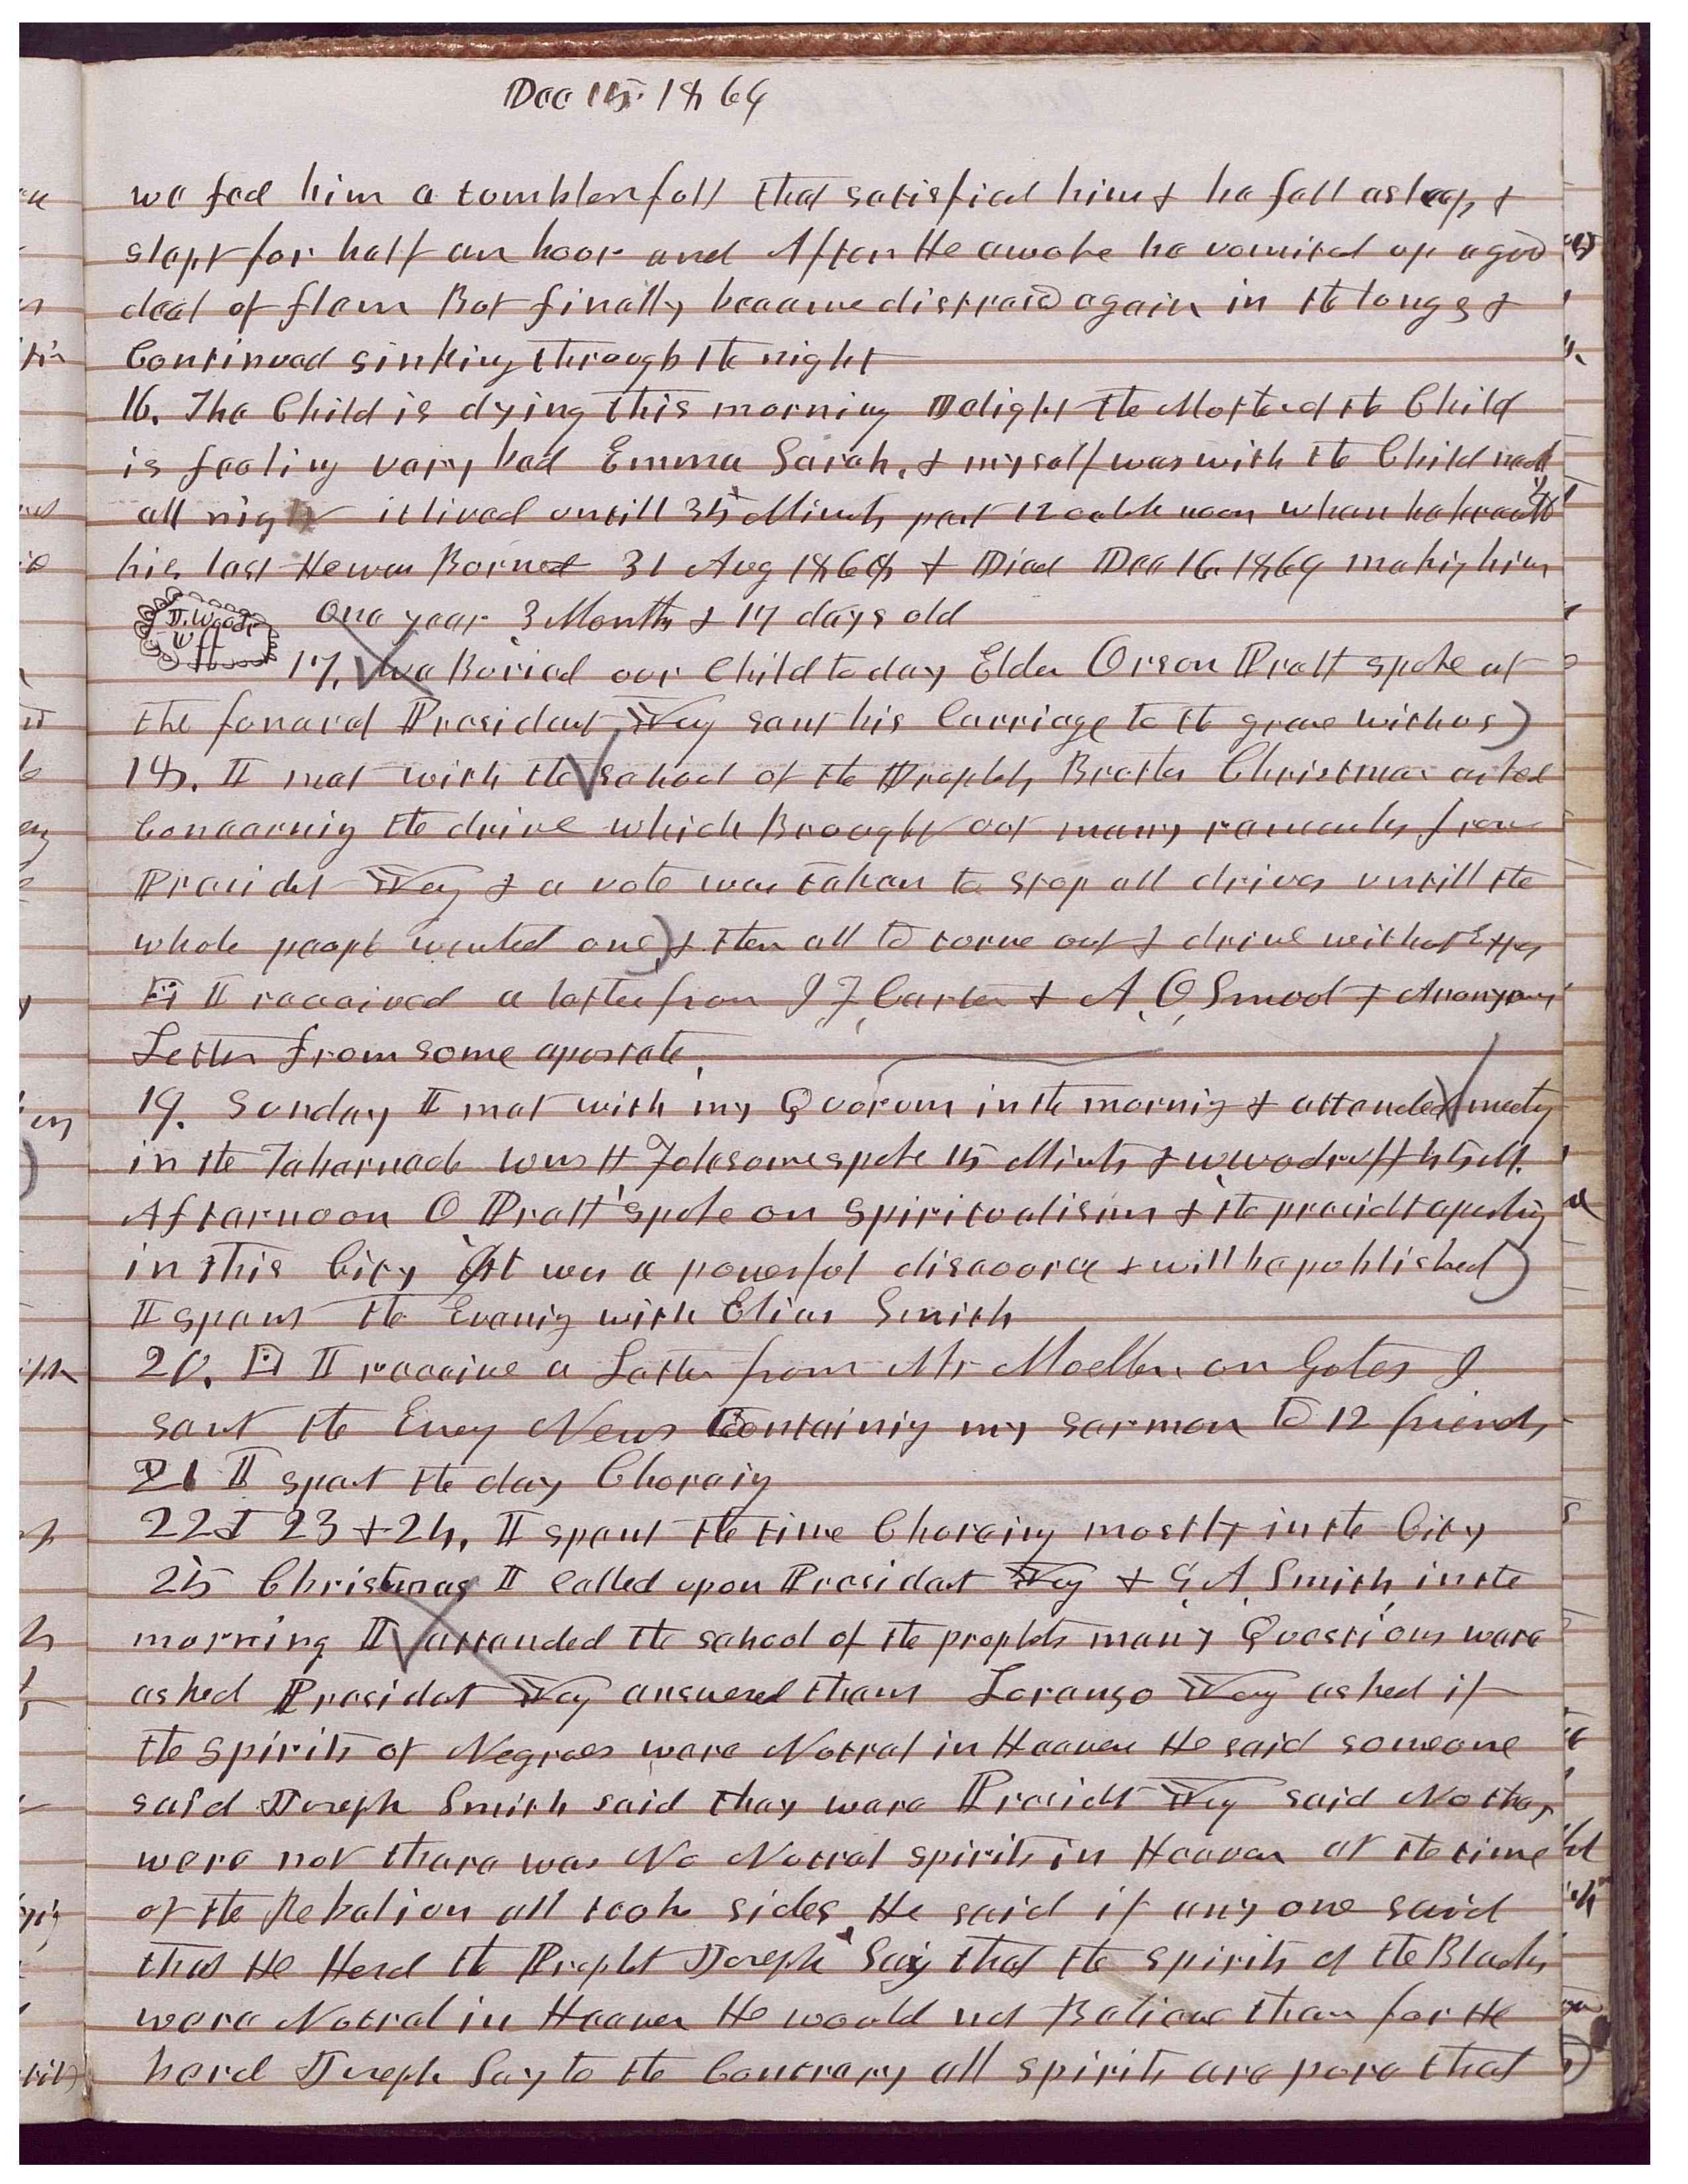 Dec 15. 1869
we fed him a tumbler full that satisfied him & he fell asleep &
slept for half an hour and After He awoke he vomited up a good
deal of flem But finally became distressd again in the lungs &
Continued sinking through the night
16. The Child is dying this morning Delight the Mother of the Child
is feeling very bad Emma Sarah, & myself was with the Child nearly
all night it lived untill 35 Minuts past 12 oclok noon when he breatht
his last He was Borned 31 Aug 1868 & Died Dec 16. 1869 makig him
One year 3 Month & 17 days old
17. We Buried our Child to day Elder Orson Pratt spoke at
the funeral President Yng sent his Carriage to the grave with us)
18. I met with the School of the Prophets Brother Christman asked
Concerning the drive which Brought out many remarks from
Presidet Yng & a vote was taken to stop all drives untill the
whole people wanted one) & then all to turne out & drive without
I received a letter from J F Carter & A, O, Smoot & Anonymus
Letter from some apostate,
19. Sunday I met with my Quorum in the mornig & attended meetig
in the Tabernacle Wm H Folesome spoke 15 Minuts & W Woodruff
Afternoon O Pratt spoke on Spiritualism & the
in this City It was a powerful discourse & will be published)
I spent the Evenig with Elias Smith
20. I receive a Letter from Mr on Gotes I
sent the Eveg News Containig my sermon to 12 friends
21 I spent the day Choreig
22 & 23 & 24, I spent the time Choreing mostly in the City
25 Christmas I Called upon President Yng & G, A, Smith, in the
morning I attended the School of the prophets many Questions were
asked Presidet Yng answered them Lorenzo Yng asked if
the Spirits of Negroes were Nutral in Heaven He said someone
said Joseph Smith said they were Presidt Yng said No they
were not there was No Nutral spirits in Heaven at the time
of the Rebelion all took sides He said if any one said
that He Herd the Prophet Joseph Say that the spirits of the Blacks
were Nutral in Heaven He would not Believe them for He
herd Joseph Say to the Contrary all spirits are pure that